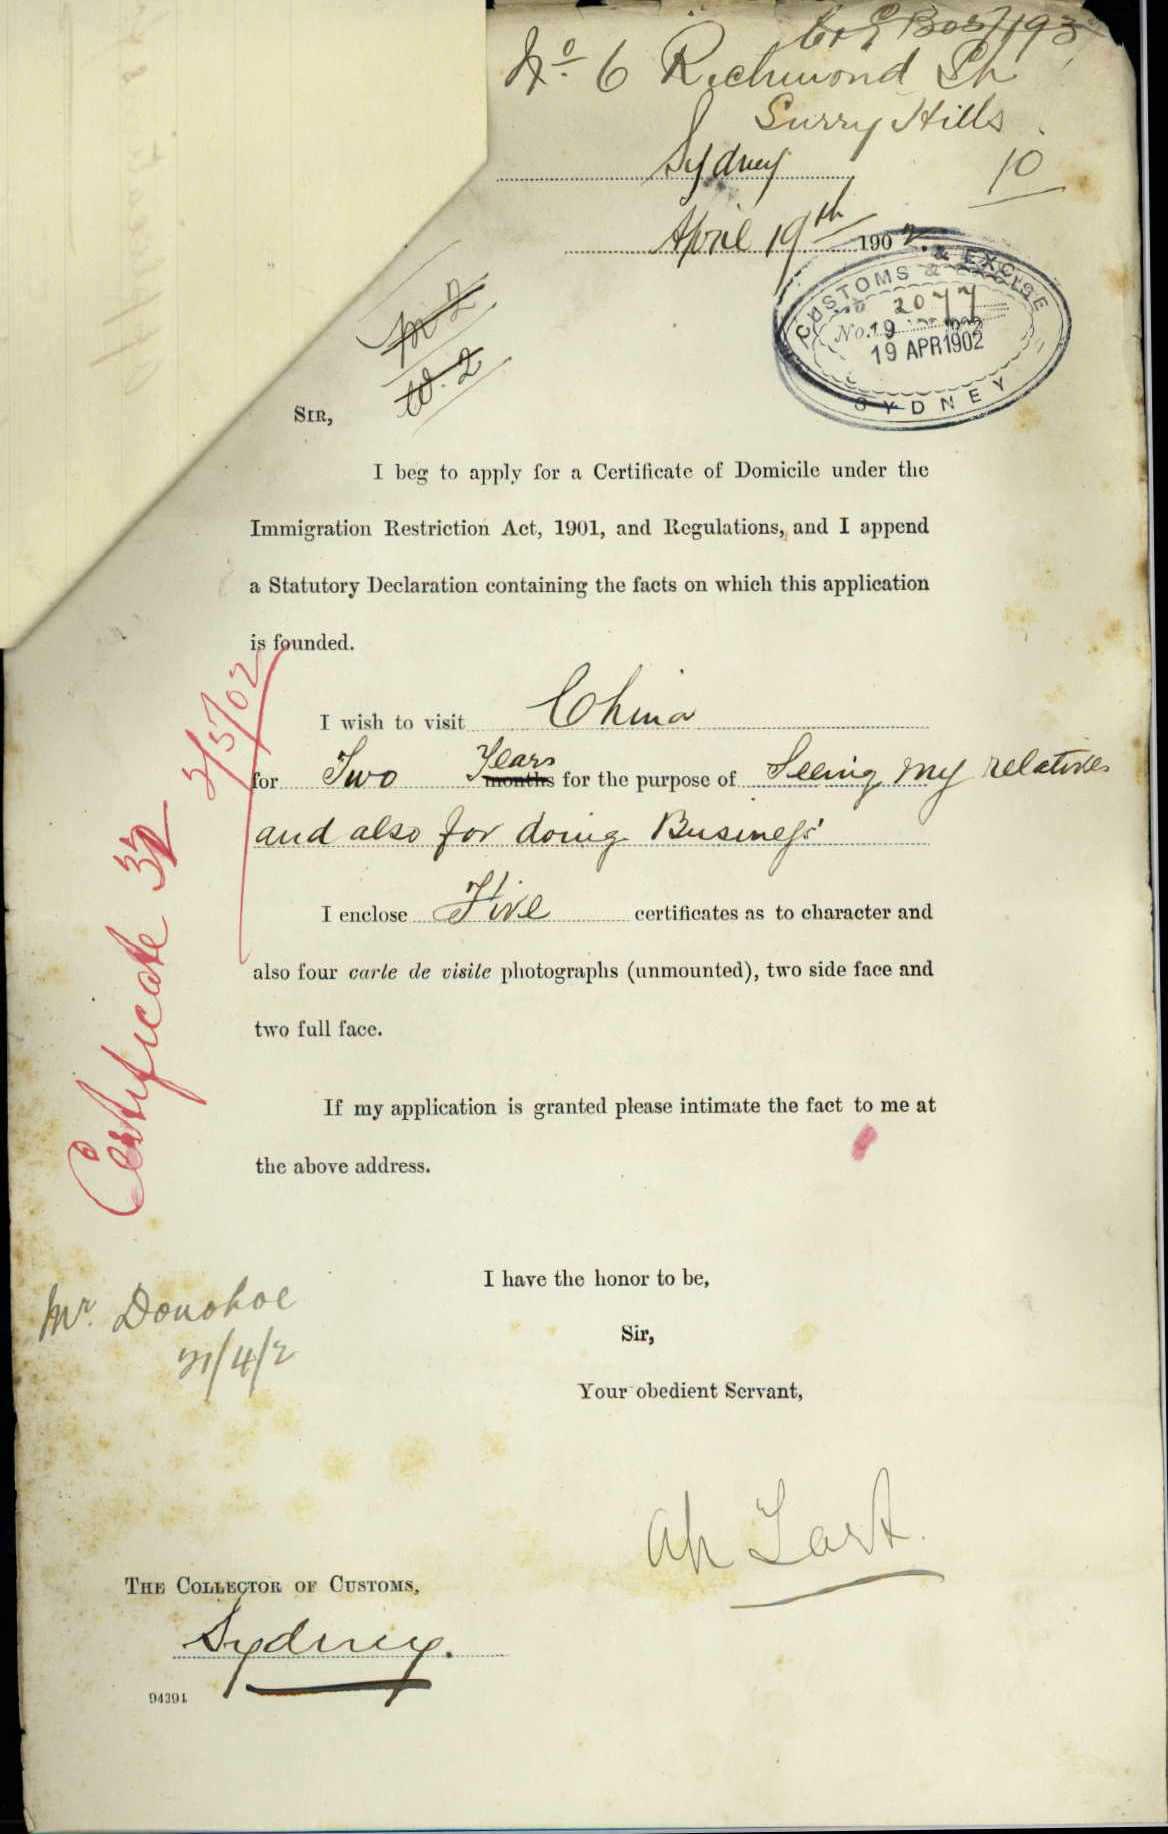 No. 6 Richmond
Surry Hills
Sydney
10
April 19th 1902.
CUSTOMS & EXCISE
No. 19
2077
19 APR 1902
SYDNEY
M 2
W. 2
SIR,
I beg to apply for a Certificate of Domicile under the
Immigration Restriction Act, 1901, and Regulations, and I append
a Statutory Declaration containing the facts on which this application
is founded.
I wish to visit China
for Two months Years for the purpose of Seeing my relatives
and also for doing Business
I enclose Five certificates as to character and
also four carte de visite photographs (unmounted), two side face and
two full face.
If my application is granted please intimate the fact to me at
the above address.
Certificate 32
2/5/02
I have the honor to be,
Sir,
Your obedient Servant,
Mr. Donohoe
21/4/2
Ah
THE COLLECTOR OF CUSTOMS,
Sydney.
94391